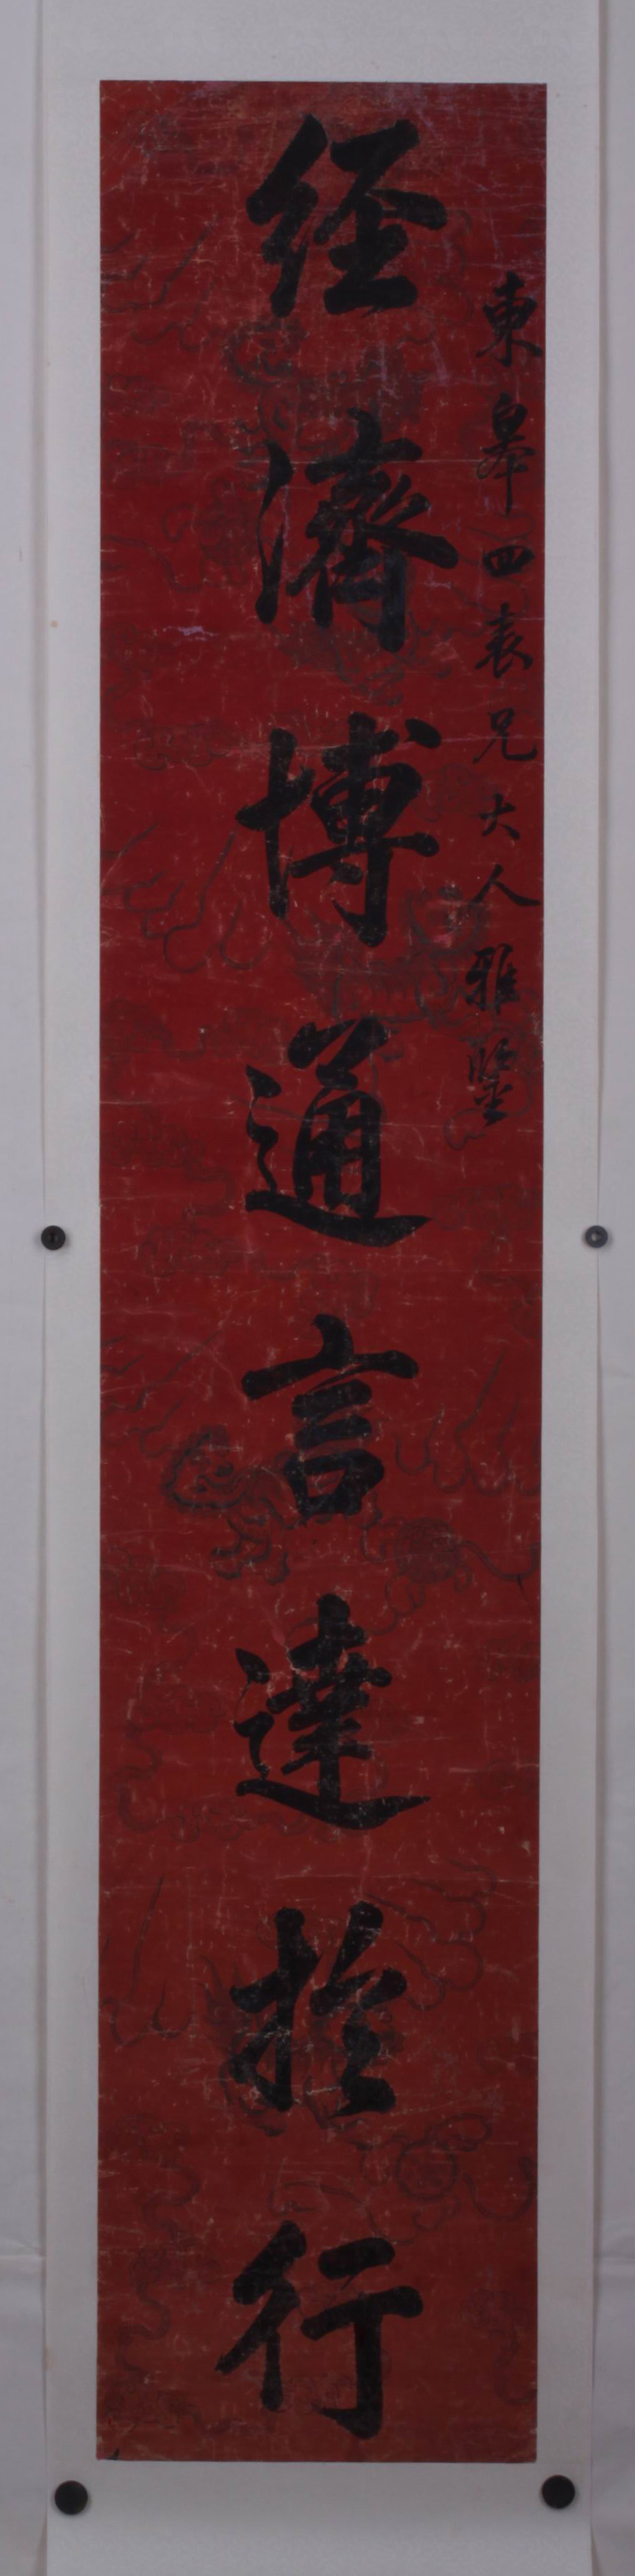 東皋四表兄大人雅鑒
経濟博通言達扵行